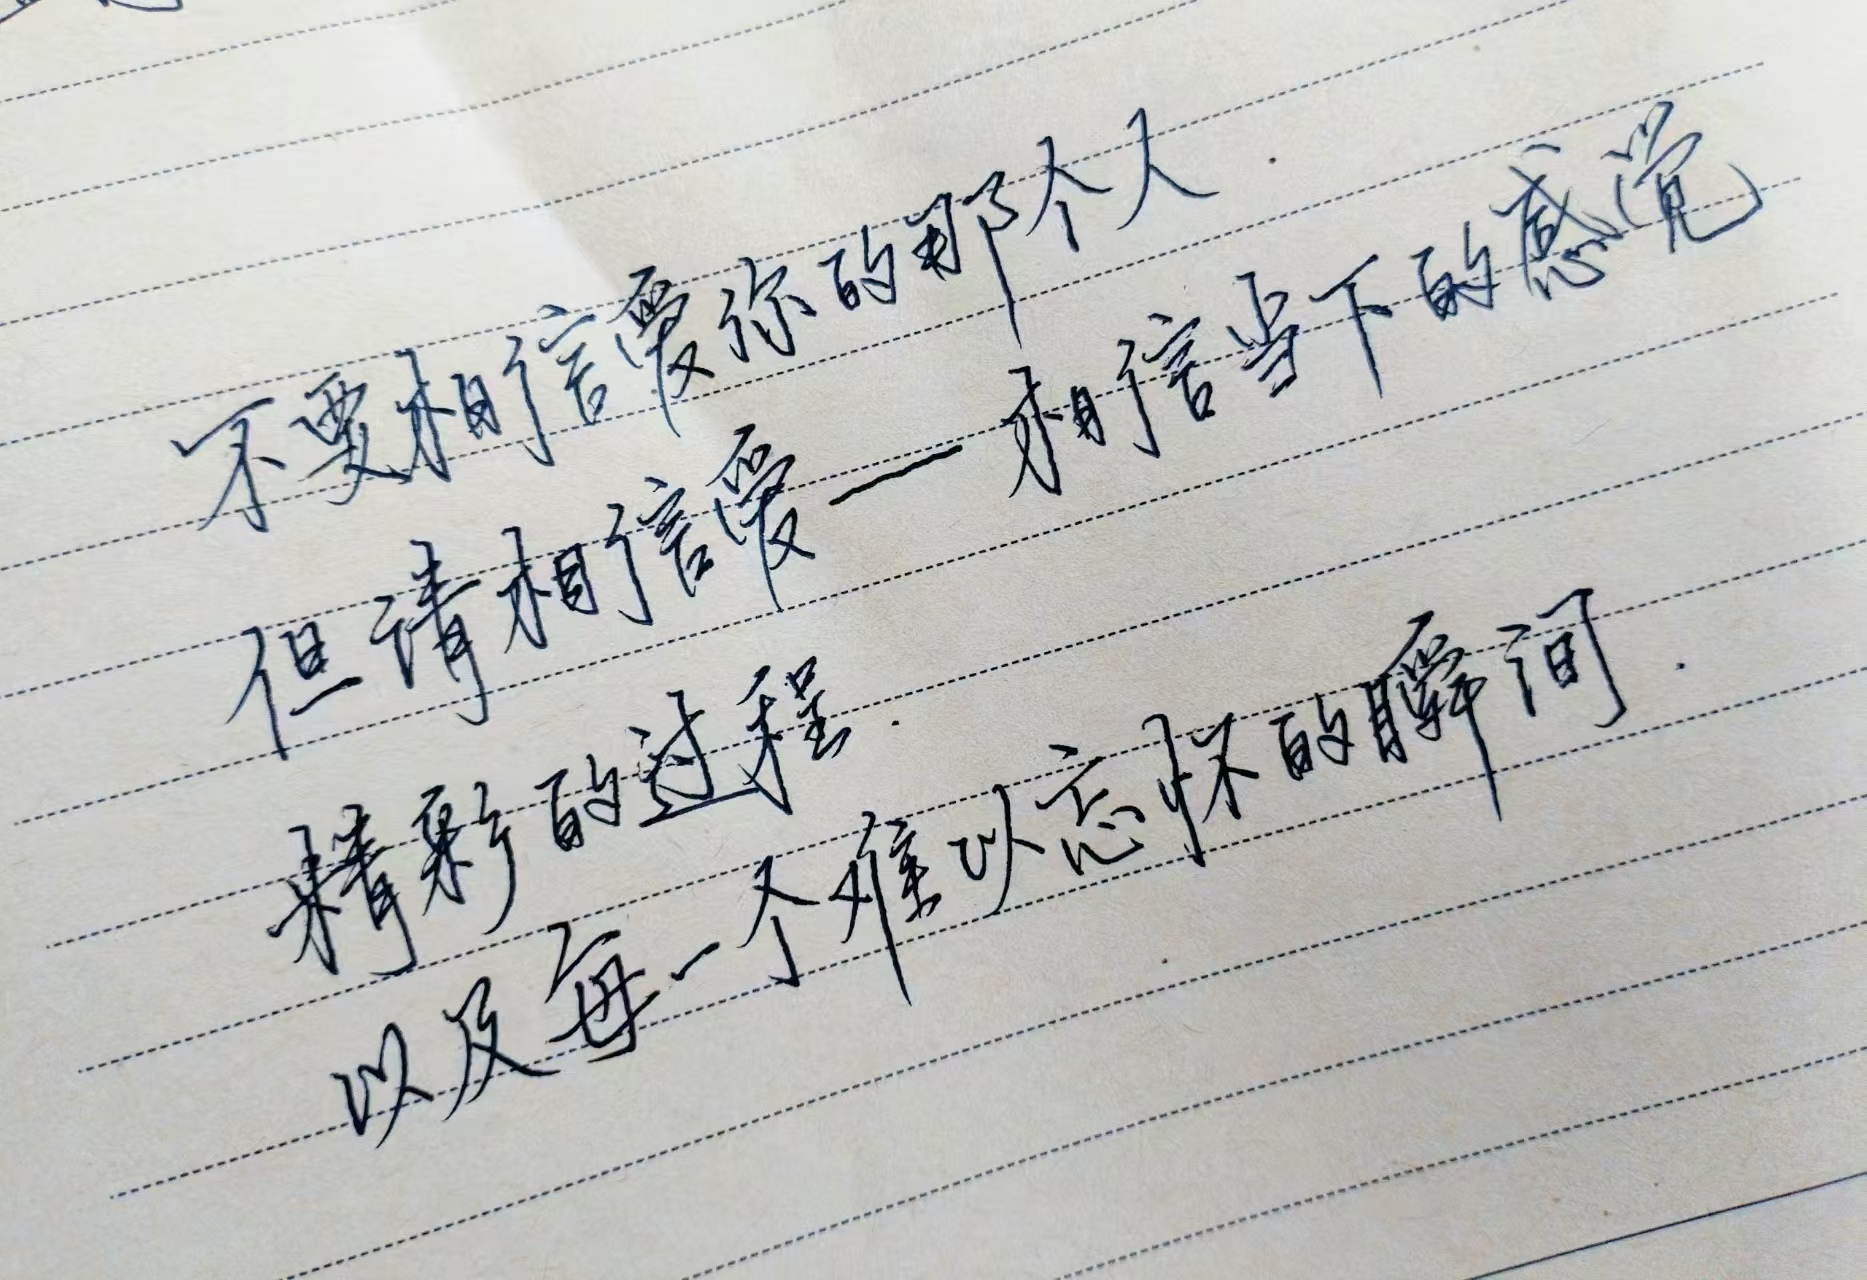 不要相信爱你的那个人.
但请相信爱—相信当下的感觉
精彩的过程.
以及每一个难以忘怀的瞬间.